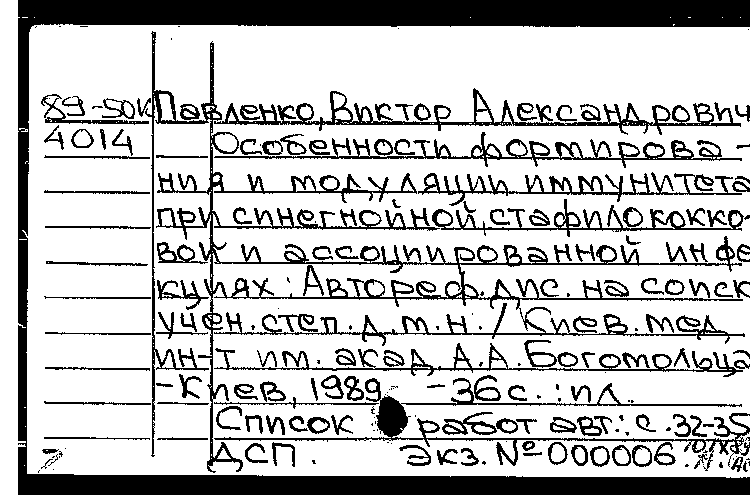 89-50к Павленко, Виктор Александрович
4014 Особенности формирова-
ния и модуляции иммунитета
при синегнойной, стафилококко-
вой и ассоциированной инфе
кциях: Автореф. дис. на соиск
учен. степ. д.м.н. / Киев. мед.
ин-т им. акад. А.А. Богомольца
-Киев, 1989. -36с.: ил.
Список работ авт.: с. 32-35
ДСП. Экз. № 000006.